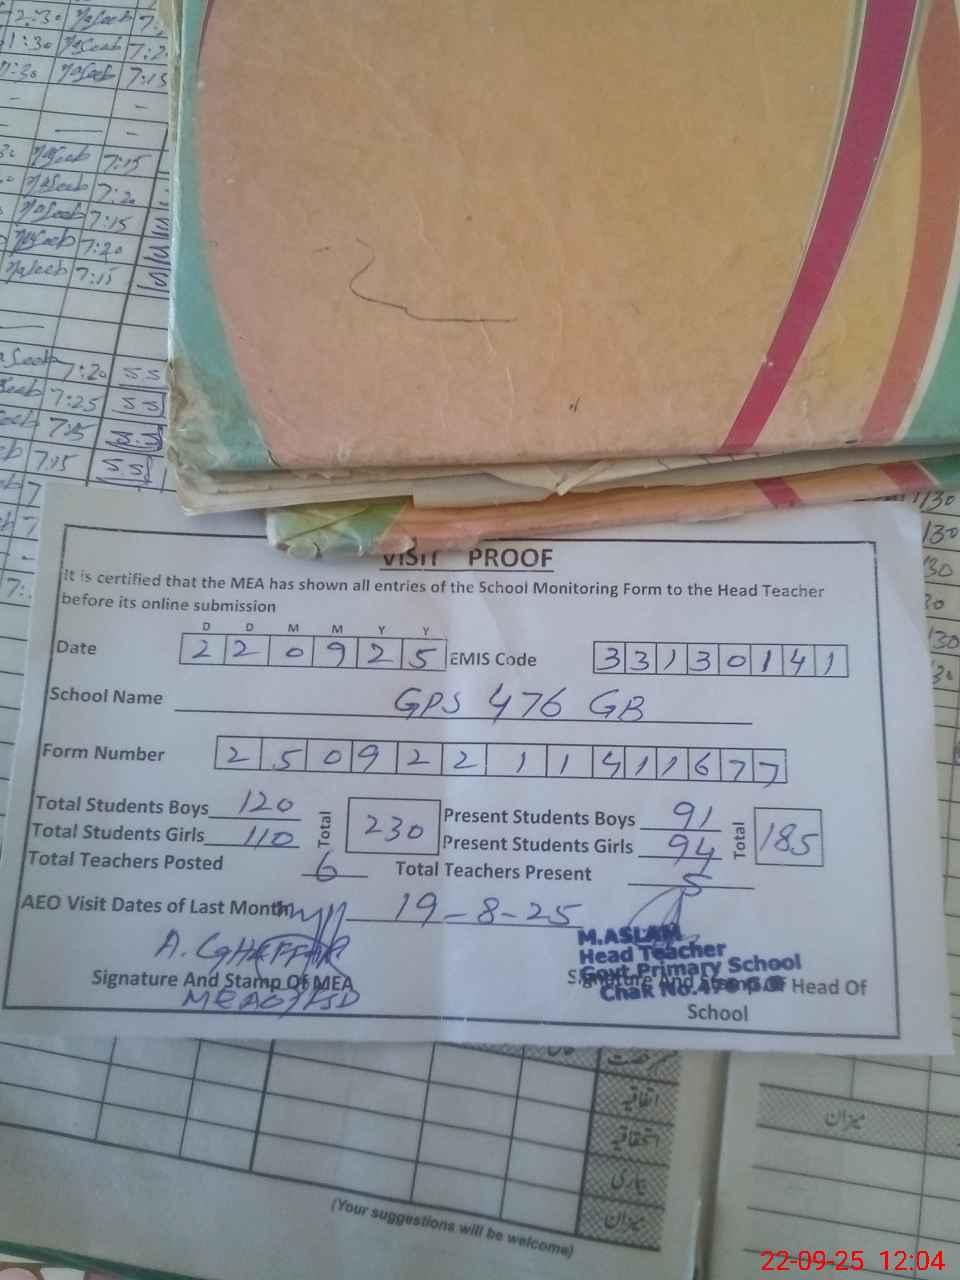 2:30 Naseeb
1:30 Naseeb 7:2
1:30 Naseeb 7:15
Naseeb 7:15
Naseeb 7:20
Naseeb 7:15
Naseeb 7:20
Naseeb 7:15
7:20
7:25
7:15
7:15
VISIT PROOF
It is certified that the MEA has shown all entries of the School Monitoring Form to the Head Teacher
before its online submission
D D M M Y Y
Date 2 2 0 9 2 5 EMIS Code 3 3 1 3 0 1 4 1
School Name GPS 476 GB
Form Number 2 5 0 9 2 2 1 1 4 1 1 6 7 7
Total Students Boys 120 Total 230 Present Students Boys 91 Total 185
Total Students Girls 110 Present Students Girls 94
Total Teachers Posted 6 Total Teachers Present 5
AEO Visit Dates of Last Month 19-8-25
A. GHAFFAR
M.ASLAM
Head Teacher
Govt Primary School
Chak No.476 GB
Signature And Stamp Of MEA
Signature And Stamp Of Head Of
School
اتفاقیہ
استحقاقیہ
بیماری
میزان
میزان
(Your suggestions will be welcome)
22-09-25 12:04